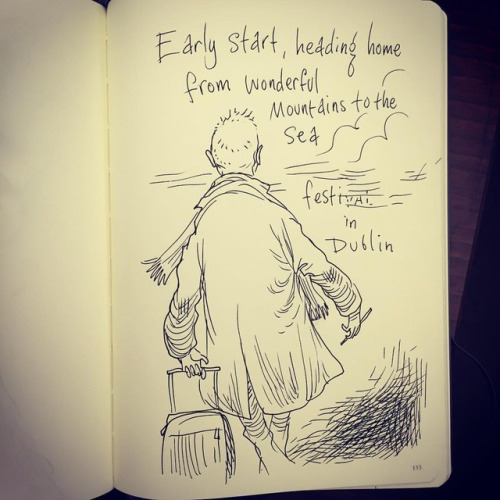 Early start, heading home
from wonderful
Mountains to the
Sea
festival
in
Dublin
133